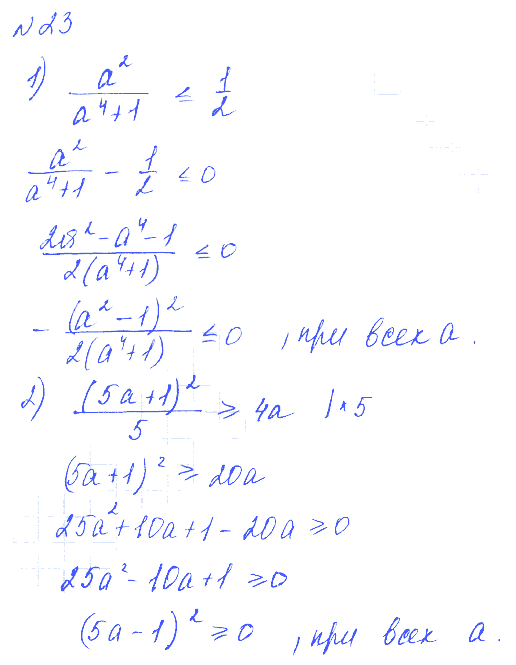 №23
1) a²/(a⁴+1) ≤ 1/2
a²/(a⁴+1) - 1/2 ≤ 0
(2a²-a⁴-1)/(2(a⁴+1)) ≤ 0
-(a²-1)²/(2(a⁴+1)) ≤ 0, при всех a.
2) (5a+1)²/5 ≥ 4a |*5
(5a+1)² ≥ 20a
25a²+10a+1-20a ≥ 0
25a²-10a+1 ≥ 0
(5a-1)² ≥ 0, при всех a.